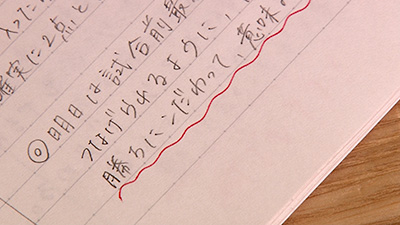 入った
確実に2点と
◎明日は試合前最
つなげられるように、
勝ちにこだわって、意味の